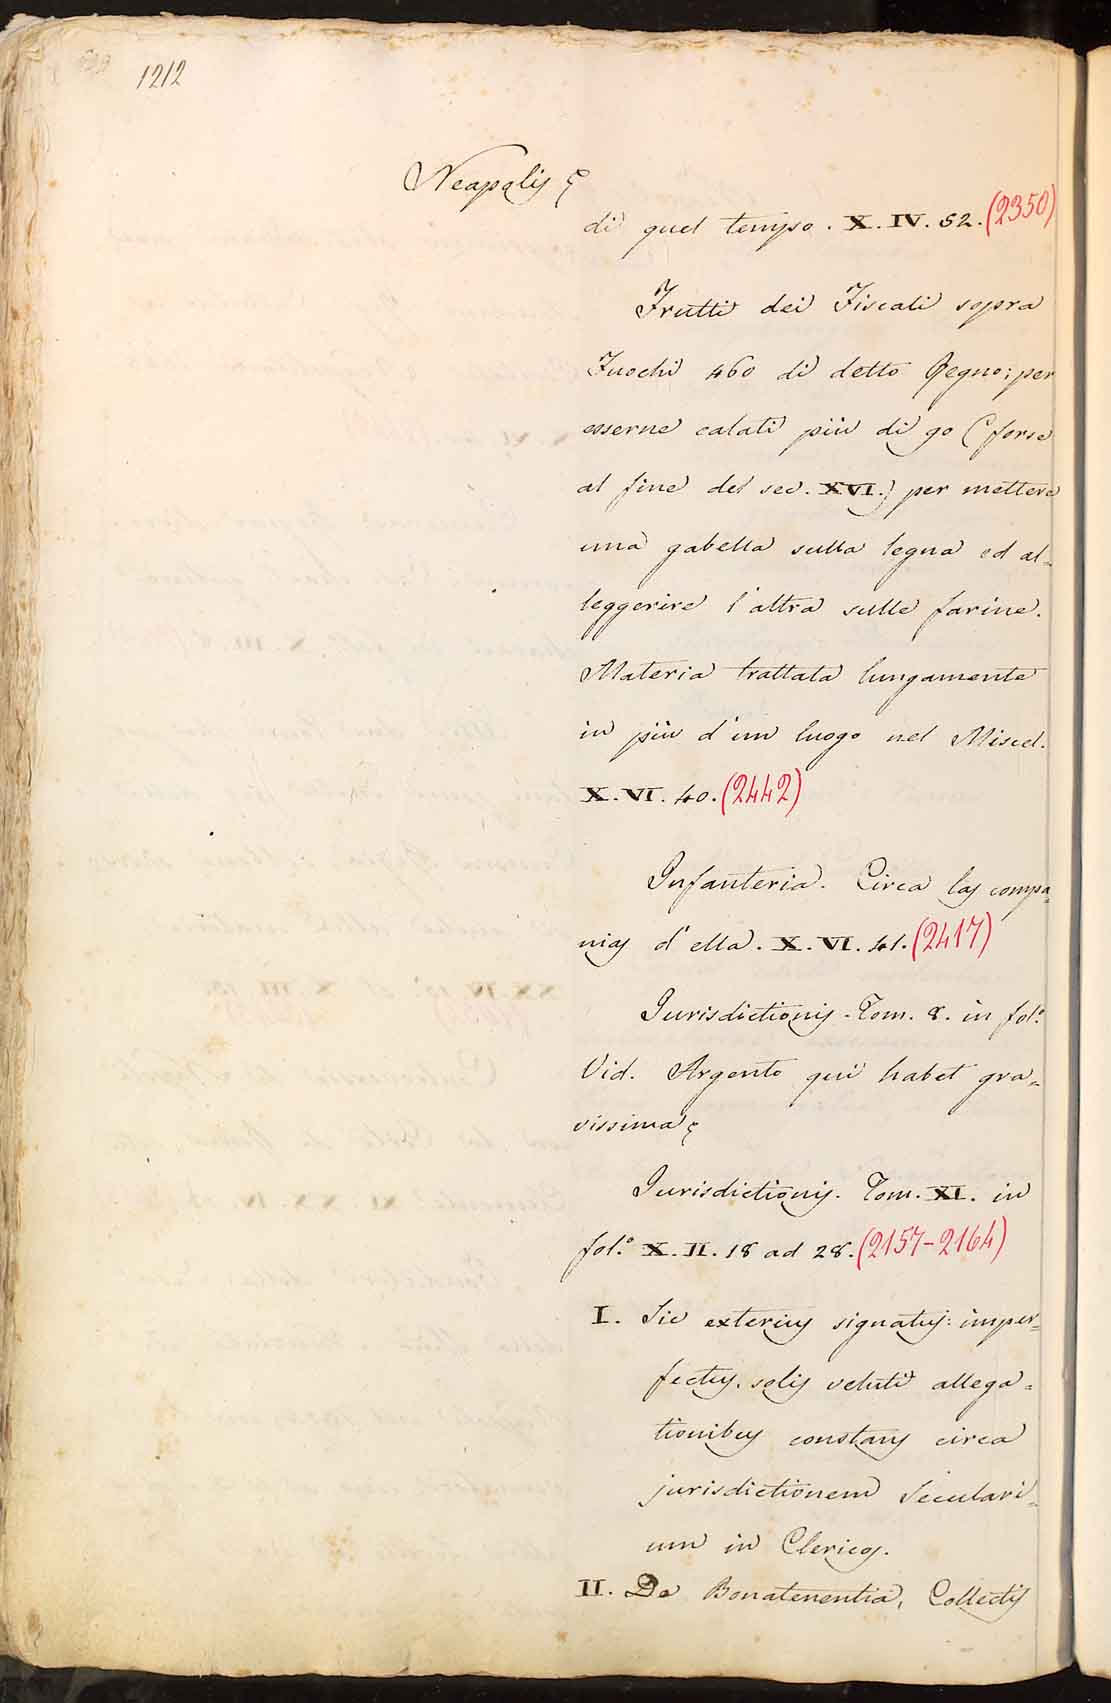 1212
Neapolis
di quel tempo. X. IV. 52. (2350)
Frutti dei Fiscali sopra
Fuochi 460 di detto Regno; per
esserne calati più di 90 (forse
al fine del sec. XVI.) per mettere
una gabella sulla legna ed al=
leggerire l'altra sulle farine.
Materia trattata lungamente
in più d'un luogo nel Miscel.
X. VI. 40. (2442)
Infanteria. Circa las compa=
nias d'ella. X. VI. 41. (2417)
Jurisdictionis. Tom. 8. in fol.º
Vid. Argento qui habet gra=
vissima
Jurisdictionis. Tom. XI. in
fol.º X. II. 18 ad 28. (2157-2164)
I. Sic exterius signatus: imper=
fectus, solis veluti allega=
tionibus constans circa
jurisdictionem Seculari=
um in Clericos.
II. De Bonatenentia, Collectis